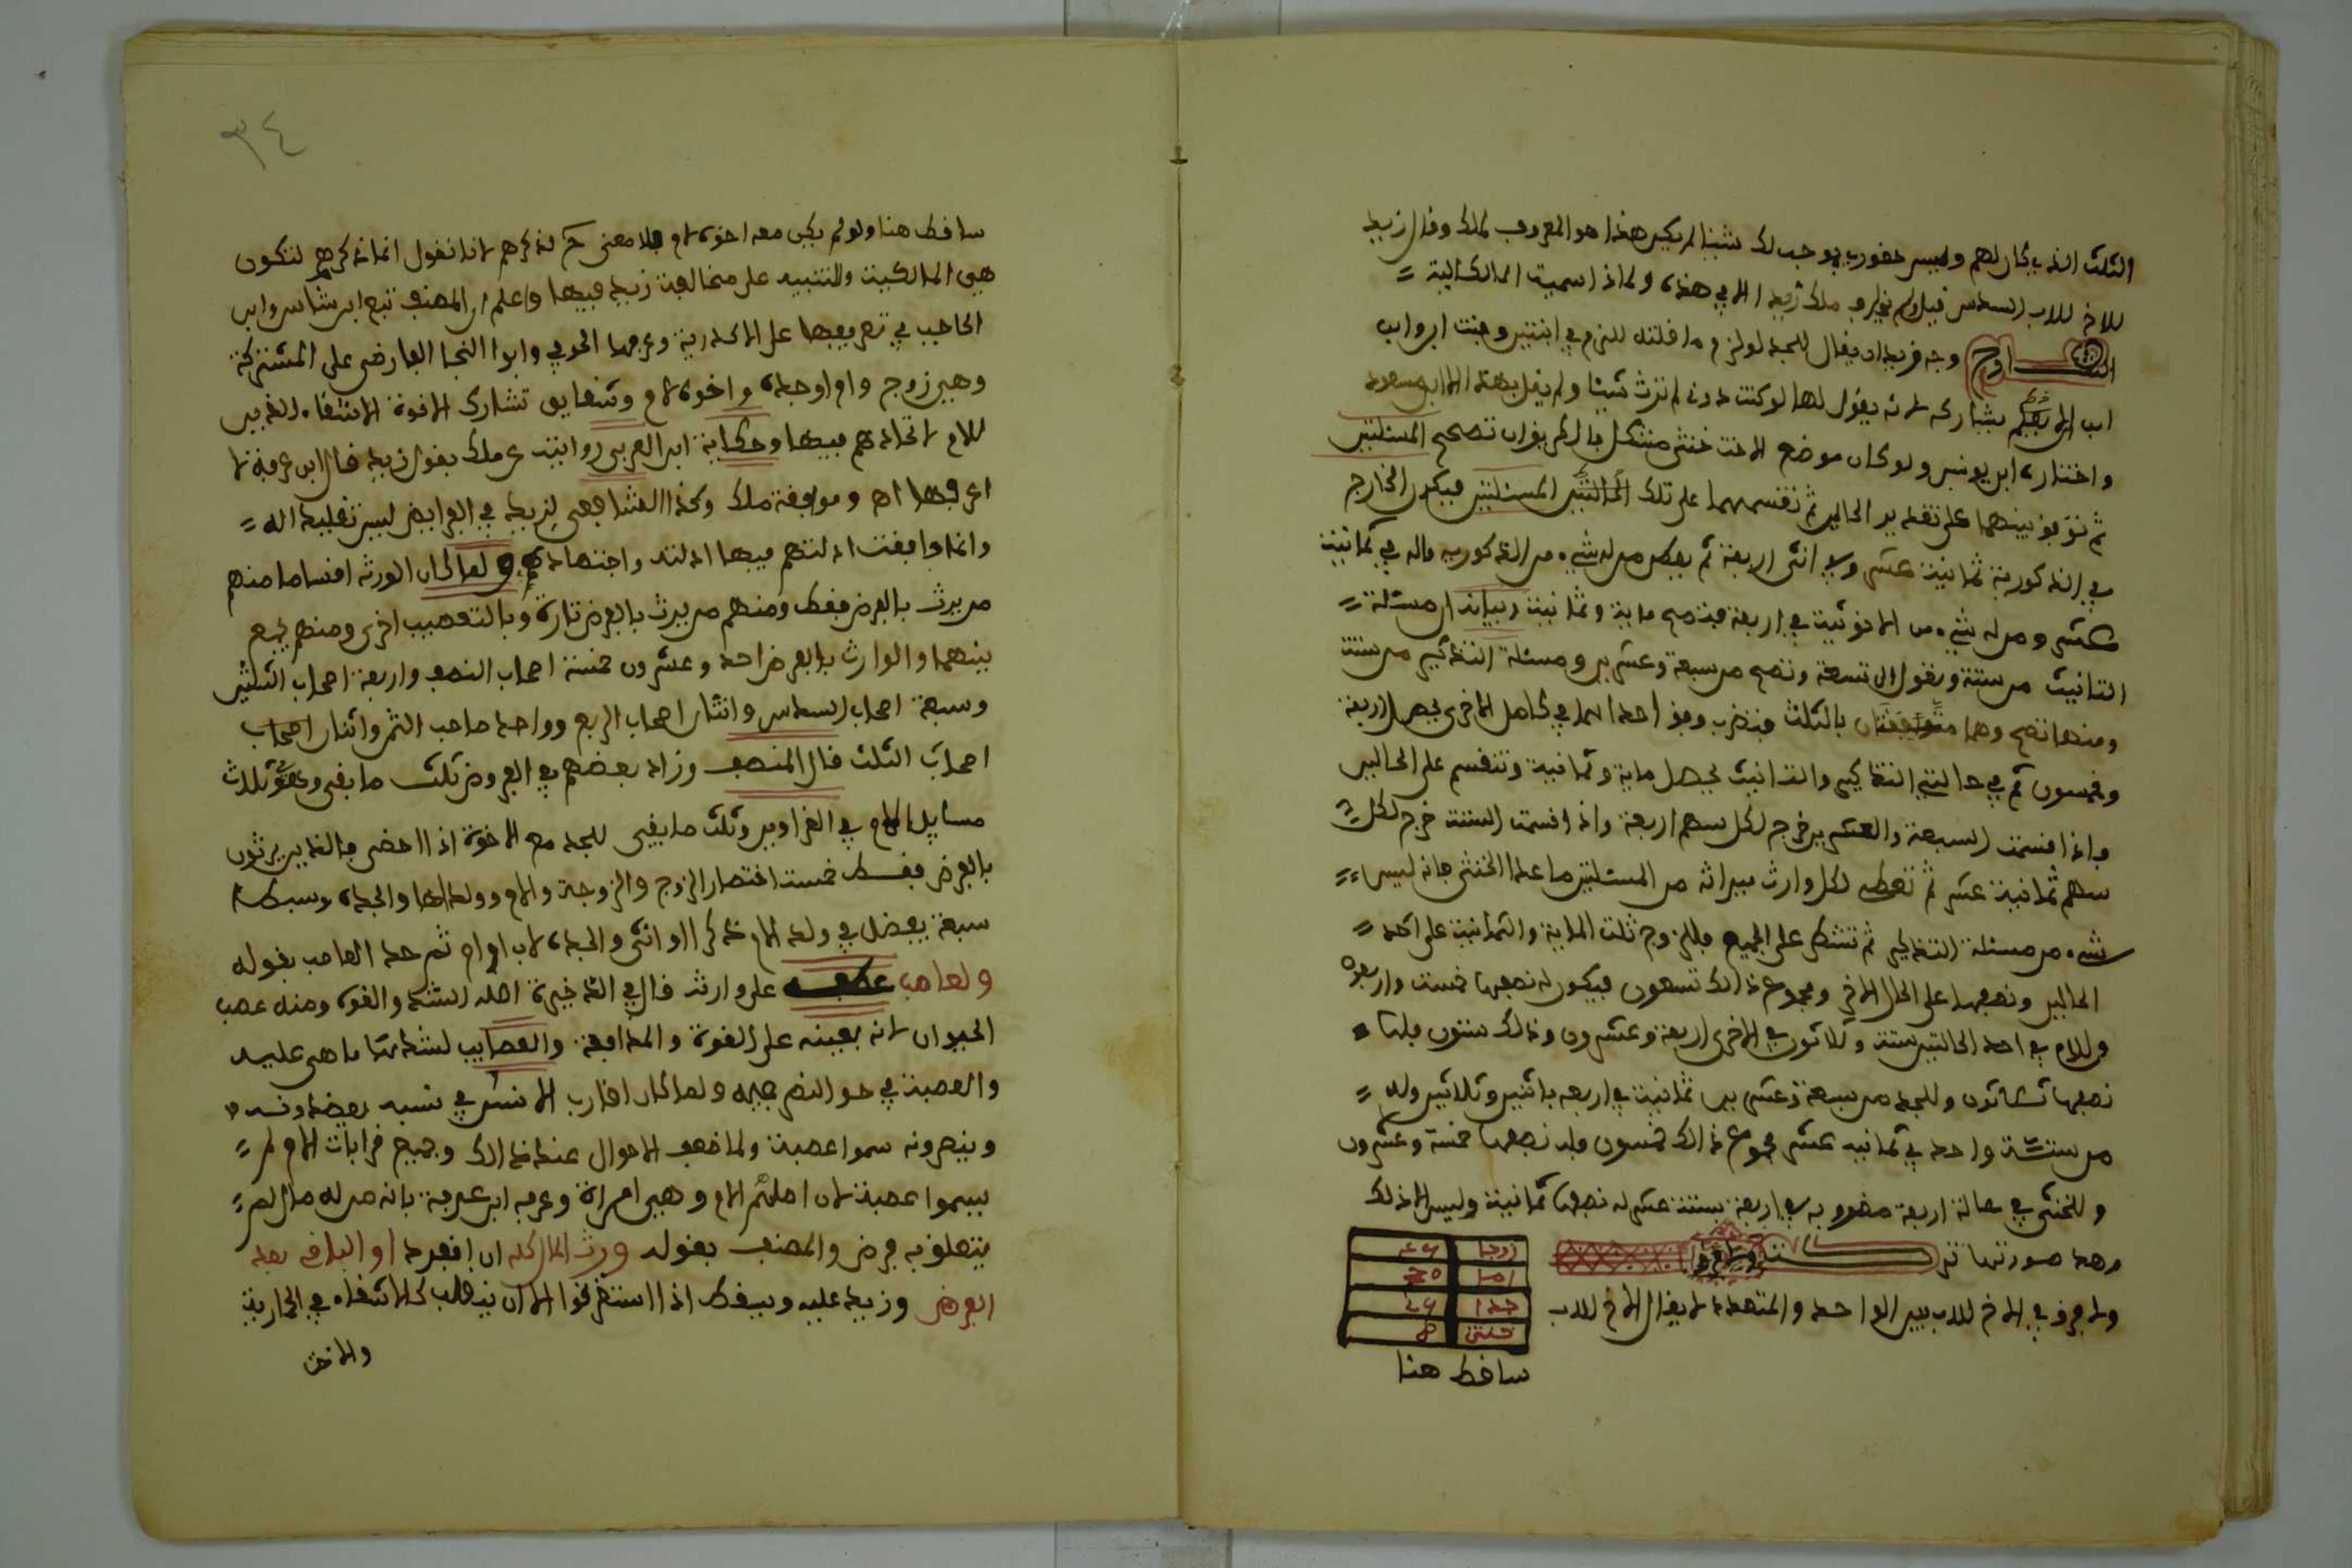 الثلث الذي كان لهم وليس حضوري يوجب لك شيئا لم يكن هذا هو المعروف لملك وقال زيد
للاخ للاب السدس قيل ولم يخالف ملك زيدا الا في هذه ولهذا سميت المالكية
الشارح وجه قوله ان يقال للجد لو لزم ما قلته للزم في ابنتين وبنت ابن وابن
ابن الا يعصبها يشاركه لانه يقول لها لو كنت دوني لم ترث شيئا ولم يقل بهذا الا ابن مسعود
واختاره ابن يونس ولو كان موضع الاخت خنثى مشكل فالطريق ان تصحح المسئلتين
ثم توفق بينهما على تقدير الحالين ثم تقسمهما على تلك المسئلتين فيكون الخارج
في الذكورية ثمانية عشر وفي انثى اربعة ثم يعطى من له شيء من الذكورية ماله في ثمانية
عشر ومن له شيء من الانوثية في اربعة فتصح مائة وثمانية وبيانه ان مسئلة
التانيث من ستة وتعول الى تسعة وتصح من سبعة وعشرين ومسئلة التذكير من ستة
ومنها تصح وهما متوافقتان بالثلث فتضرب وفق احداهما في كامل الاخرى يحصل اربعة
وخمسون ثم في حالتي التذكير والتانيث يحصل مائة وثمانية وتنقسم على الحالين
فاذا قسمت السبعة والعشرين خرج لكل سهم اربعة واذا قسمت الستة خرج لكل
سهم ثمانية عشر ثم تعطي لكل وارث ميراثه من المسئلتين ما عدا الخنثى فانه ليس له
شيء من مسئلة التذكير ثم تشطر على الجميع فللزوج ثلث المائة والثمانية على احد
الحالين ونصفها على الحال الاخر ومجموع ذالك تسعون فيكون له نصفها خمسة واربعون
وللام في احد الحالتين ستة وثلاثون في الاخرى اربعة وعشرون وذلك ستون فلها
نصفها ثلاثون وللجد من سبعة وعشرين ثمانية في اربعة باثنين وثلاثين وله
من ستة واحد في ثمانية عشر مجموع ذالك خمسون فله نصفها خمسة وعشرون
وللخنثى في حالة اربعة مضروبة في اربعة بستة عشر له نصفها ثمانية وليس الا ذلك
وهذه صورتها
زوجا ٤٥
اما ٣٠
جدا ٢٥
خنثى ٨
ولا فرق في الاخ للاب بين الواحد والمتعدد لا يقال الاخ للاب
ساقط هنا
٣٤
ساقط هنا ولو لم يكن معه اخوة لام فلا معنى لذكرهم لانا نقول انما ذكرهم لتكون
هي المالكية وللتنبيه على مخالفة زيد فيها واعلم ان المصنف تبع ابن شاس وابن
الحاجب في تفريعها على الاكدرية وفرعها الحوفي وابوا النجا الفارضي على المشتركة
وهي زوج وام او جدة واخوة لام وشقايق تشارك الاخوة الاشقاء الذين
للام لاتحادهم فيها وحكاية ابن العربي روايتين عن ملك بقول زيد قال ابن عرفة لا
اعرفها اه وموافقة ملك وكذا الشافعي لزيد في الفرايض ليس تقليدا له
وانما وافقت ادلتهم فيها ادلته واجتهاده ولما كان الورثة اقساما منهم
من يرث بالفرض فقط ومنهم من يرث بالفرض تارة وبالتعصيب اخرى ومنهم يجمع
بينهما والوارث بالفرض احد وعشرون خمسة اصحاب النصف واربعة اصحاب الثلثين
وسبعة اصحاب السدس واثنان اصحاب الربع وواحد صاحب الثمن واثنان اصحاب
اصحاب الثلث قال المصنف وزاد بعضهم في الفروض ثلث ما بقي وهو ثلاث
مسايل للام في الغراوين وثلث ما بقي للجد مع الاخوة اذا احضي فالذين يرثون
بالفرض فقط خمسة اختصار الزوج والزوجة والام وولدالها والجدة وبسطا
سبعة يفصل في ولد الام ذكرا او انثى والجدة لاب او ام ثم حد العاصب بقوله
ولعاصب عطفه على وارث قال في الذخيرة اصله الشدة والقوة ومنه عصب
الحيوان لانه يعينه على القوة والمدافعة والعصايب لشدتها ما هي عليه
والعصبة في حق النصر جيه ولما كان اقارب الانسان في نسبه يعضدونه
وينصرونه سموا عصبة ولما ضعف الاخوال عن ذالك وجميع قرابات الام لم
يسموا عصبة لان اصلهم الام وهي امراة وعرفه ابن عرفة بانه من له مال لم
يتعلق به فرض والمصنف بقوله ورث المال كله ان انفرد او الباقي بعد
الفرض وزيد عليه ويسقط اذا استغرقوا الا ان ينقلب كالاشقاء في الحمارية
والاخت